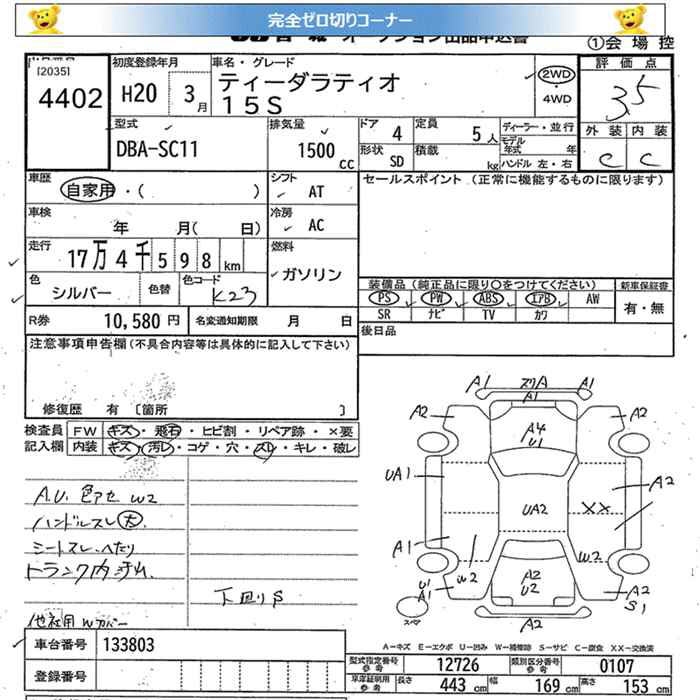 完全ゼロ切りコーナー
オークション出品申込書
①会場控
[2035]
4402
初度登録年月
H20 3月
車名・グレード
ティーダラティオ
15S
2WD
・
4WD
評価点
3.5
外装 内装
C C
型式
DBA-SC11
排気量
1500 cc
ドア 4
定員 5人
ディーラー・並行
モデル年式 年
形状 SD
積載 kg
ハンドル 左・右
車歴
自家用・( )
シフト
AT
セールスポイント (正常に機能するものに限ります)
車検
年 月( 日)
冷房
AC
走行
17万4千598km
燃料
ガソリン
色
シルバー
色替
色コード
K23
装備品 (純正品に限り○をつけてください)
新車保証書
PS PW ABS エアB AW
有・無
SR ナビ TV カワ
R券 10,580円
名変通知期限 月 日
後日品
注意事項申告欄(不具合内容等は具体的に記入して下さい)
修復歴 有 [箇所 ]
検査員 FW キズ・飛石・ヒビ割・リペア跡・×要
記入欄 内装 キズ・汚レ・コゲ・穴・スレ・キレ・破レ
A.U. 色アセ W2
ハンドルスレ 大
シートスレ、ヘたり
トランク内汚れ
下回りS
他社用Wカバー
A1 スリA A1
A1
A2 A2
A4
U1
UA1 A2
UA2 XX
A1
W2 W2
A2
U2
U1
A1
A2
S1
スペア
A2
A=キズ E=エクボ U=凹み W=補修跡 S=サビ C=腐食 XX=交換済
車台番号 133803
登録番号
型式指定番号 参考 12726
類別区分番号 参考 0107
車庫証明用 参考
長さ 443cm
幅 169cm
高さ 153cm